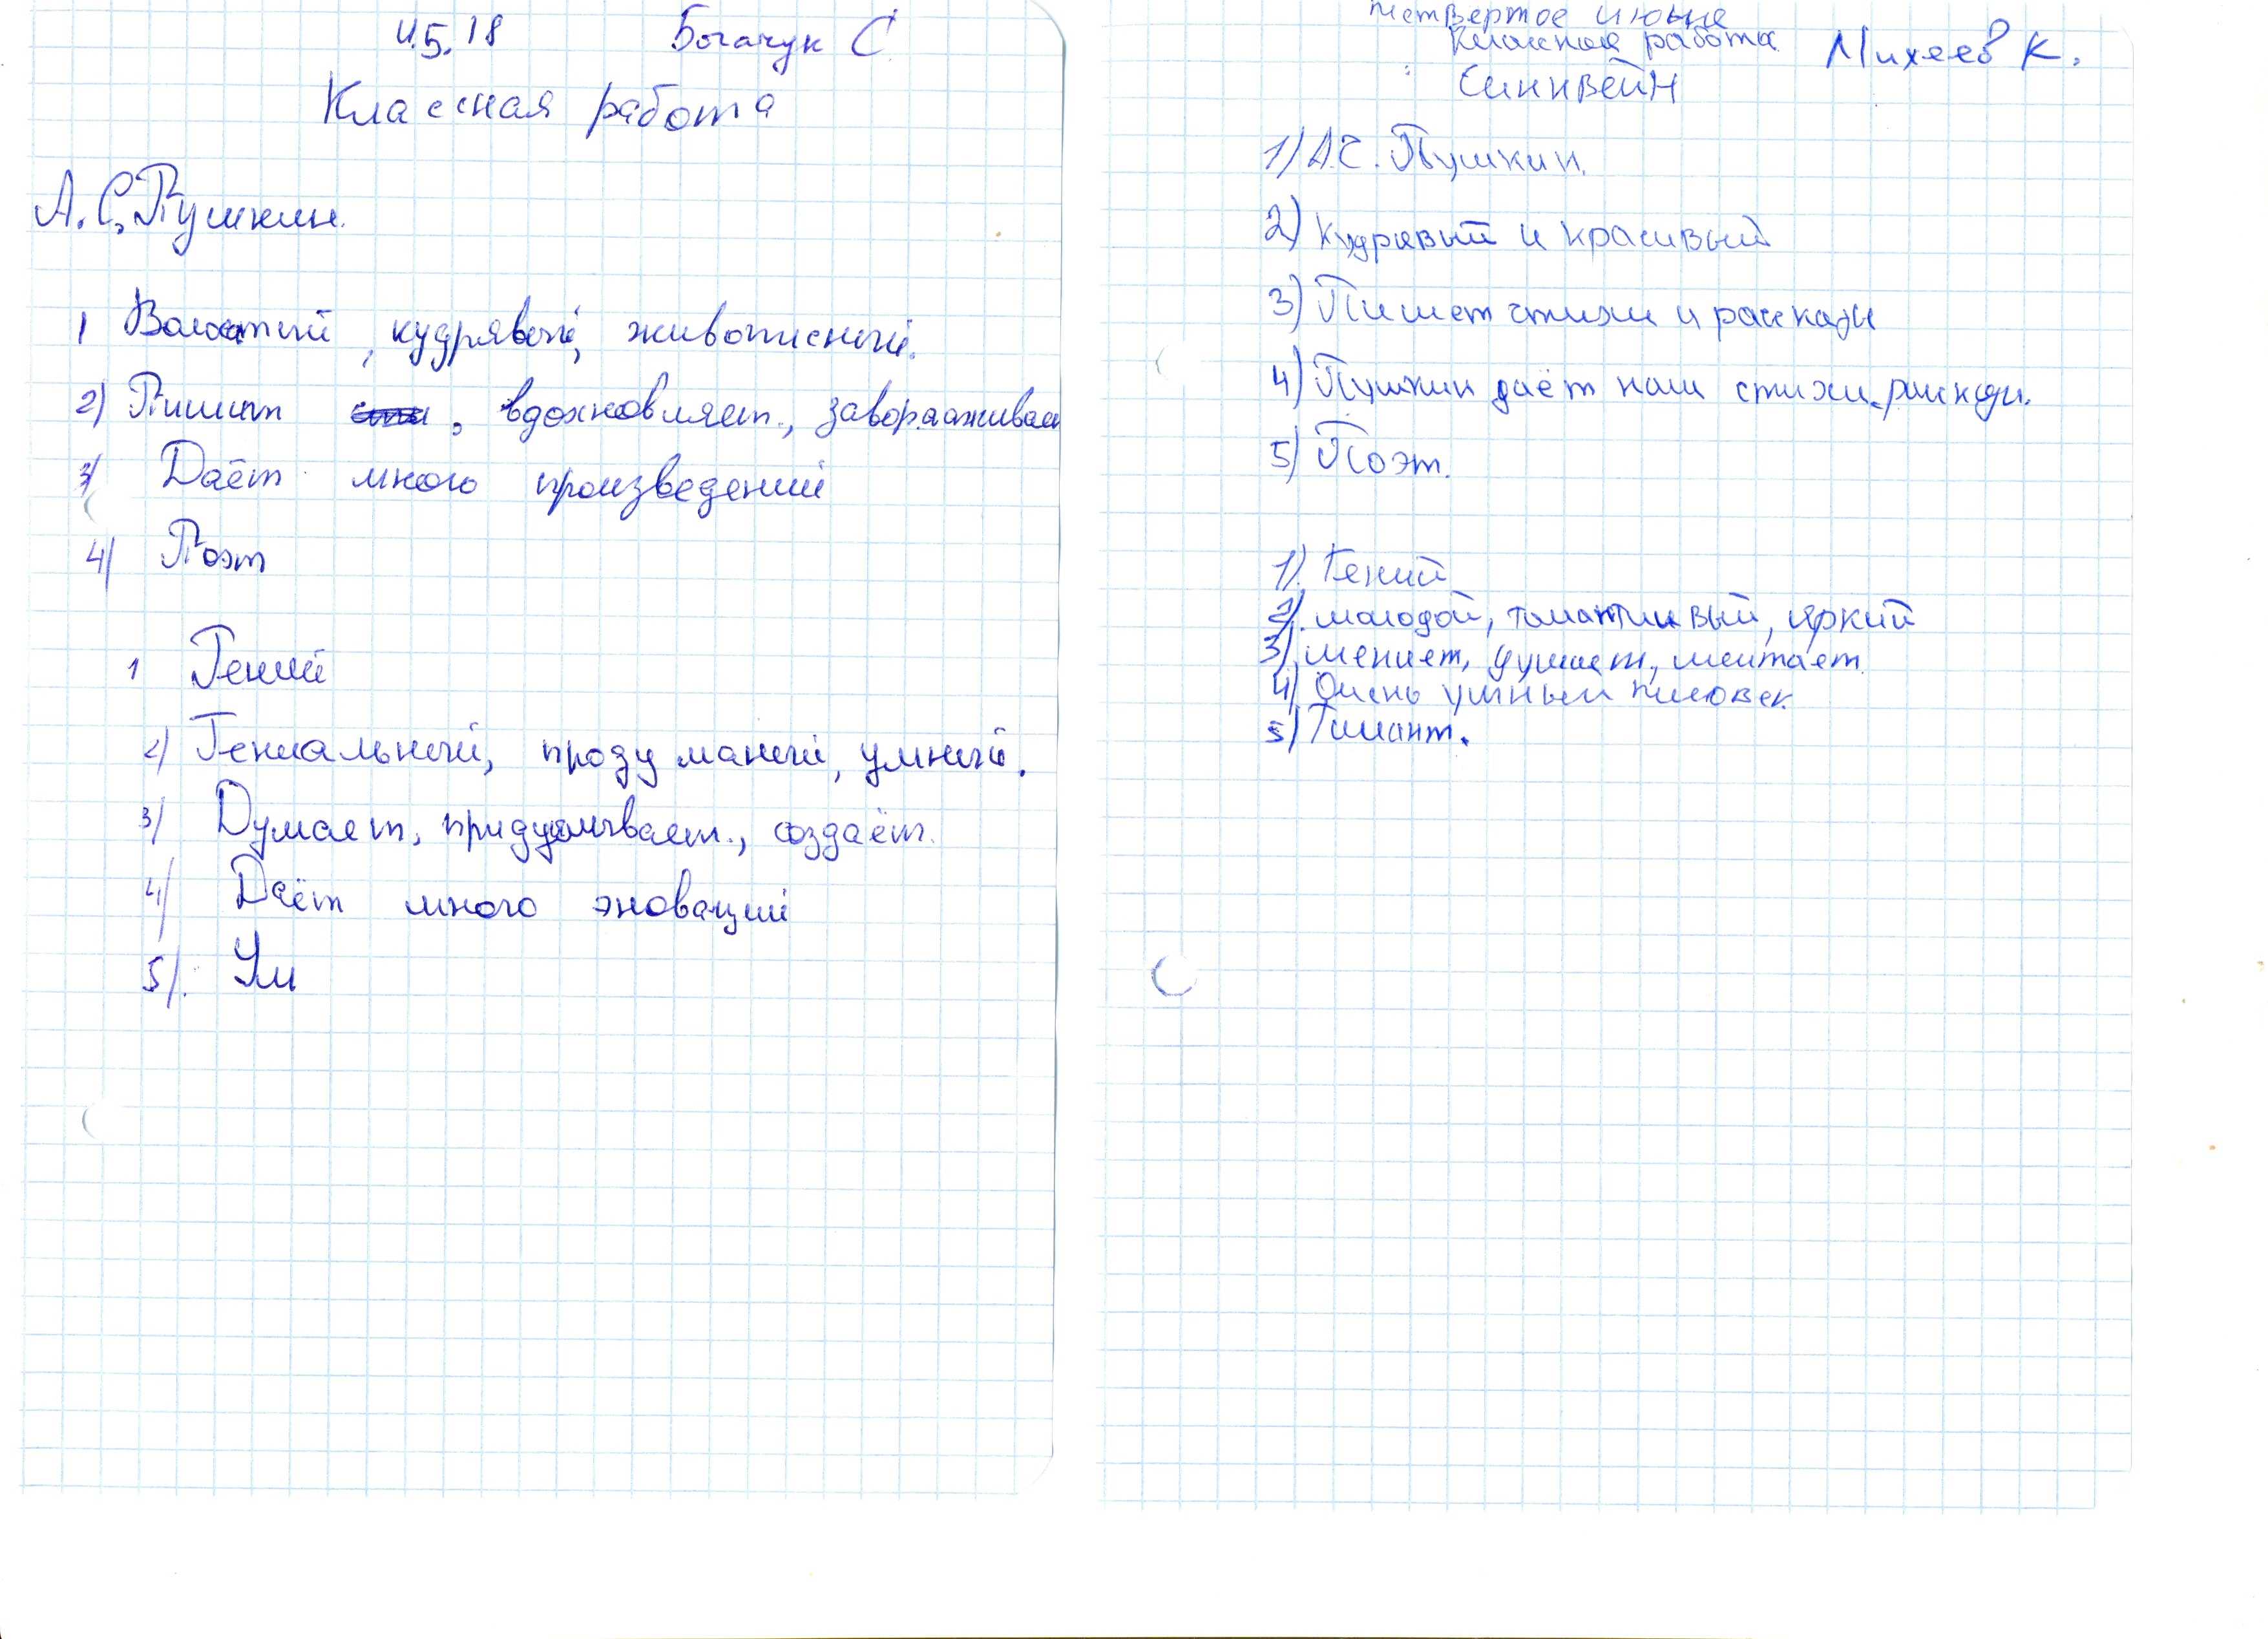 4.5.18 Богачук С
Классная работа
А.С. Пушкин.
1 кудрявый, живописный.
2) Пишит , вдохновляет, заворааживает
3) Даёт много произведений
4) Поэт
1 Гений
2) Гениальный, продуманый, умный.
3) Думает, придумывает, создаёт.
4) Даёт много эноваций
5). Ум
четвертое июня
Классная работа Михеев К.
Синквейн
1) А.С. Пушкин.
2) Кудрявый и красивый
3) Пишет стихи и рассказы
4) Пушкин даёт нам стихи.
5) Поэт.
1). Гений
2). молодой, яркий
3). меняет, думает, мечтает.
4) Очень умный человек
5) Талант.